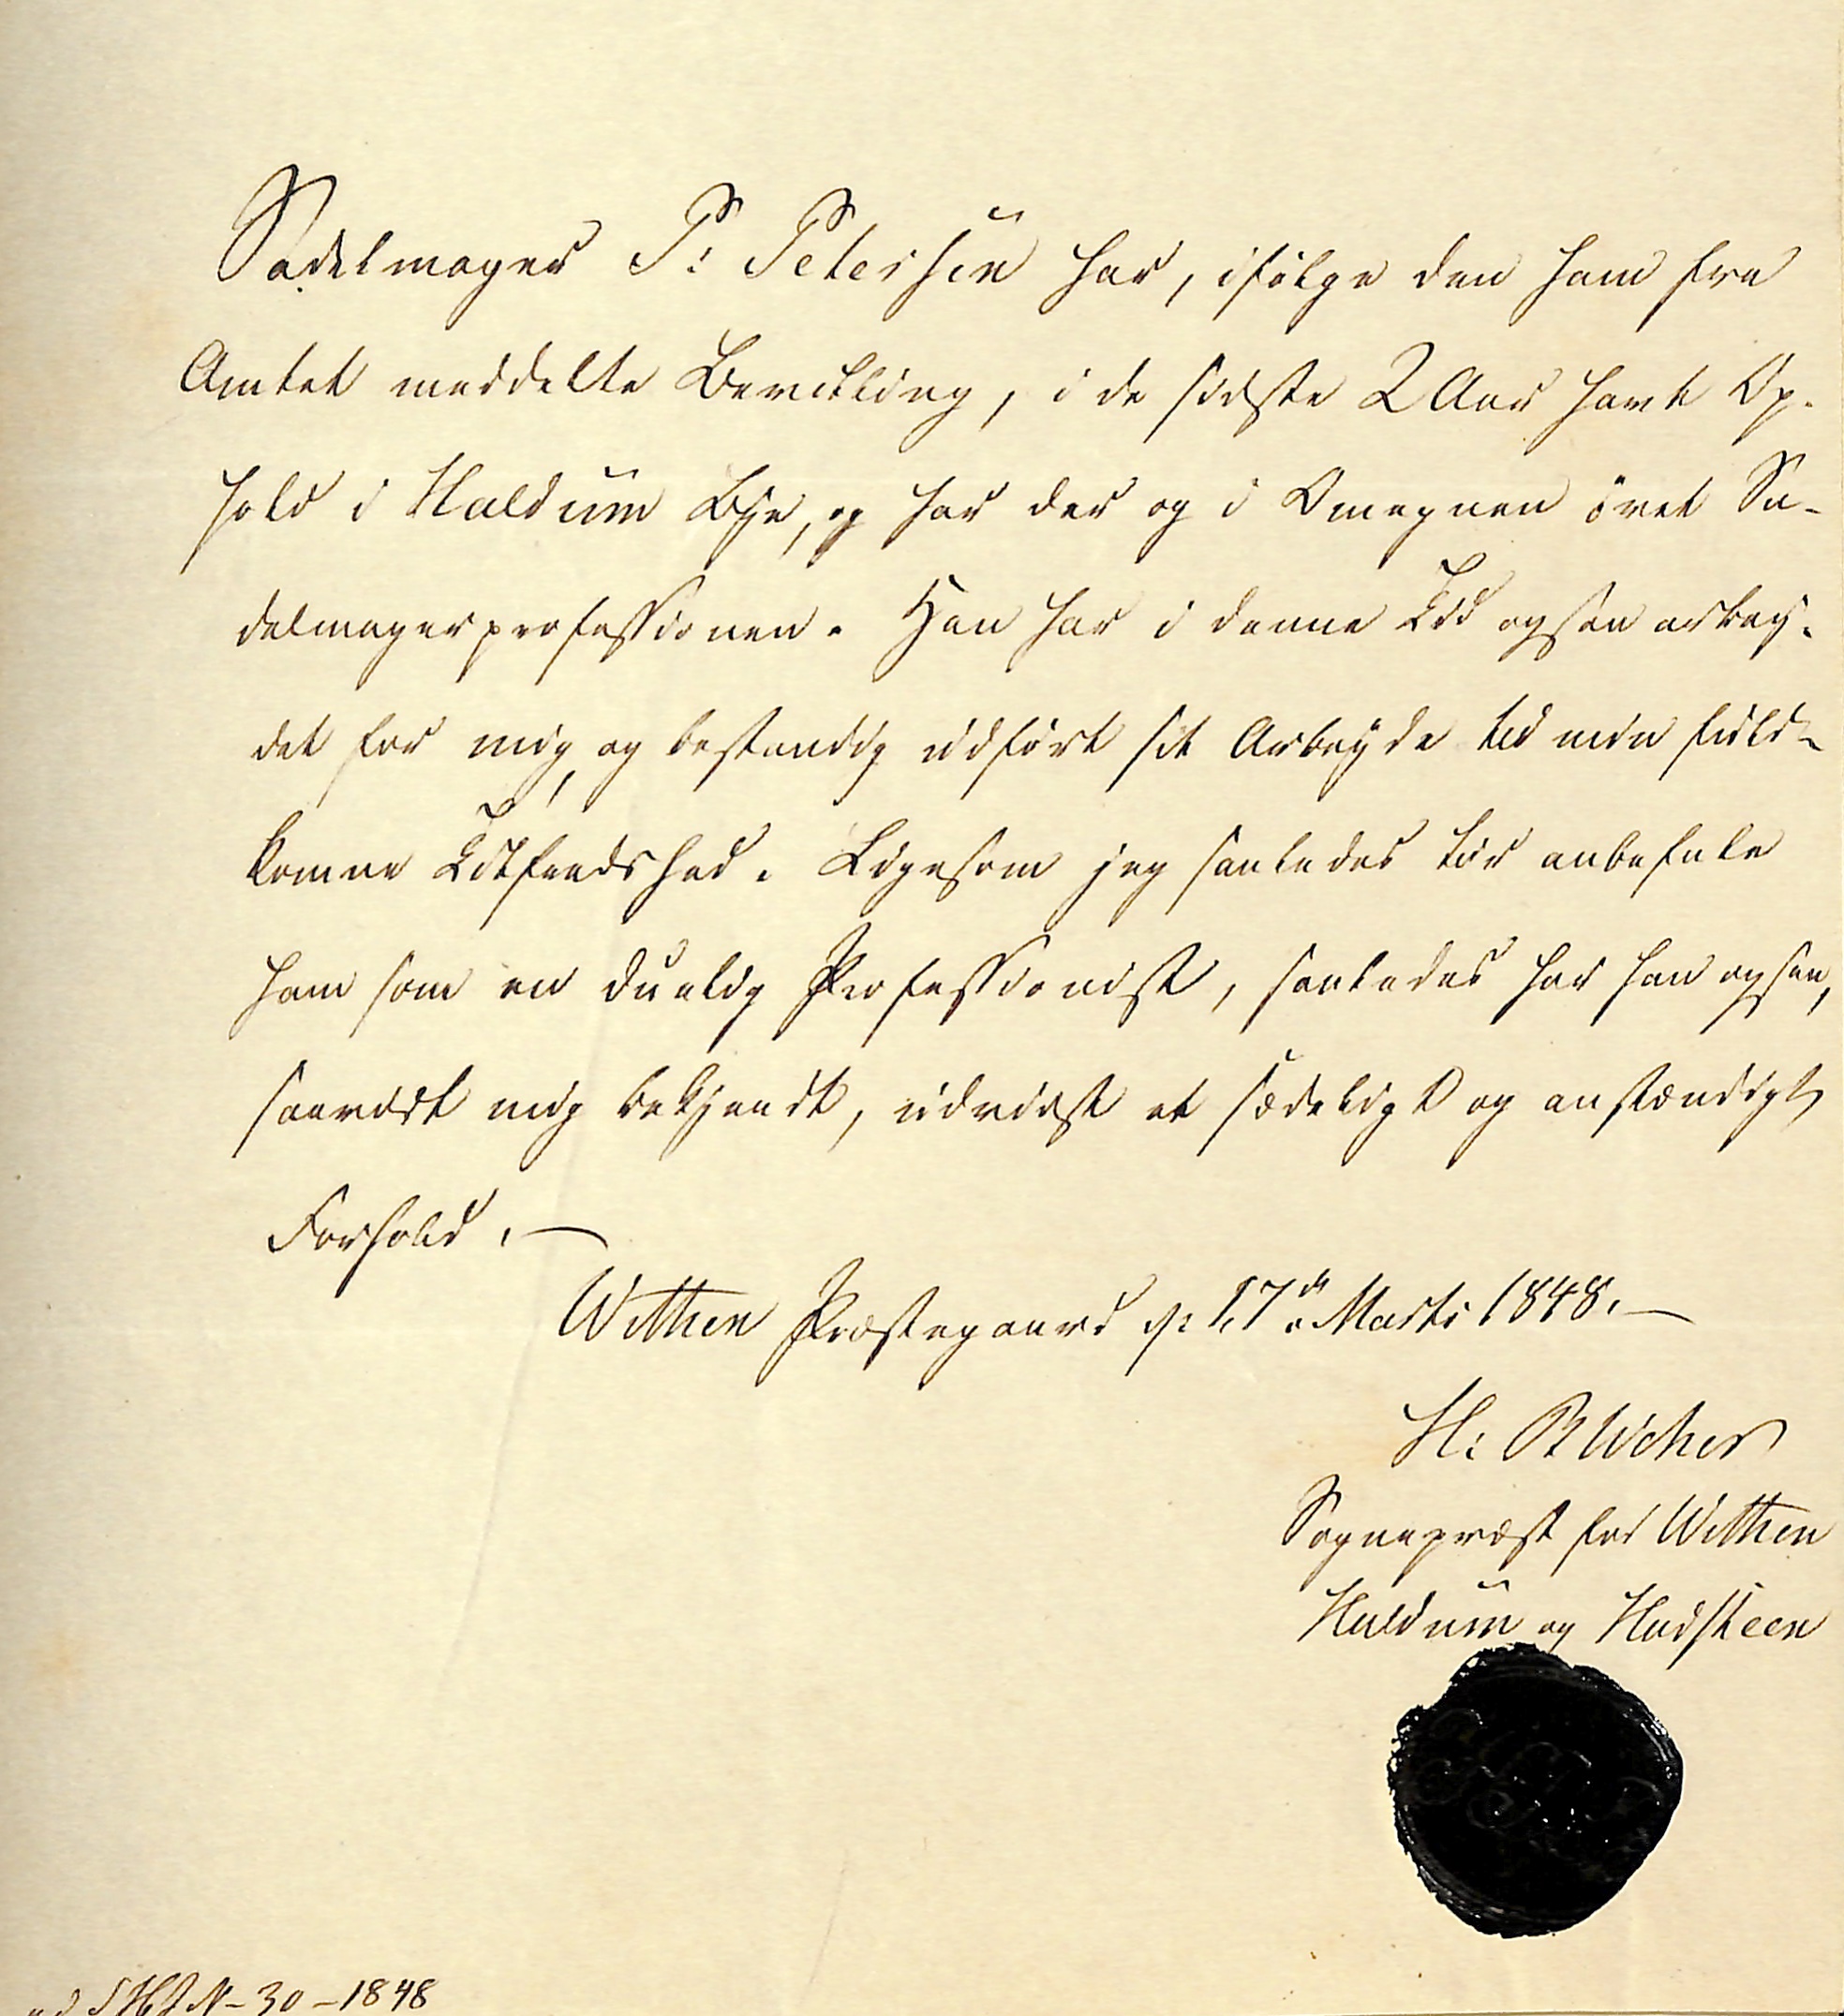 Sadelmager P: Petersen har, ifölge den ham fra
Amtet meddelte Bevilling, i de sidste 2 Aar havt Op-
hold i Haldum Bye, og har der og i Omegnen övet Sa-
delmagerprofessionen. Han har i denne Tid ogsaa arbey-
det for mig, og bestandig udfört sit Arbeyde til min fuld-
komne Tilfredshed. Ligesom jeg saaledes tör anbefale
ham som en duelig Professionist, saaledes har han ogsaa,
saavidt mig bekjendt, udviist et sædeligt og anstændigt
Forhold. —
Witten Præstegaard d: 17de Marts 1848. —
H: Blicher
Sognepræst for Witten
Haldum og Hadsteen
ad N-30-1848